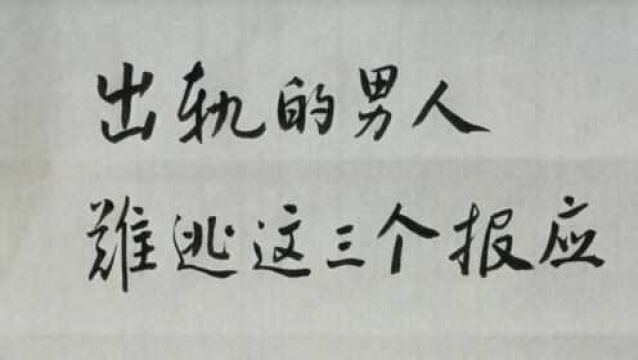 出轨的男人
难逃这三个报应